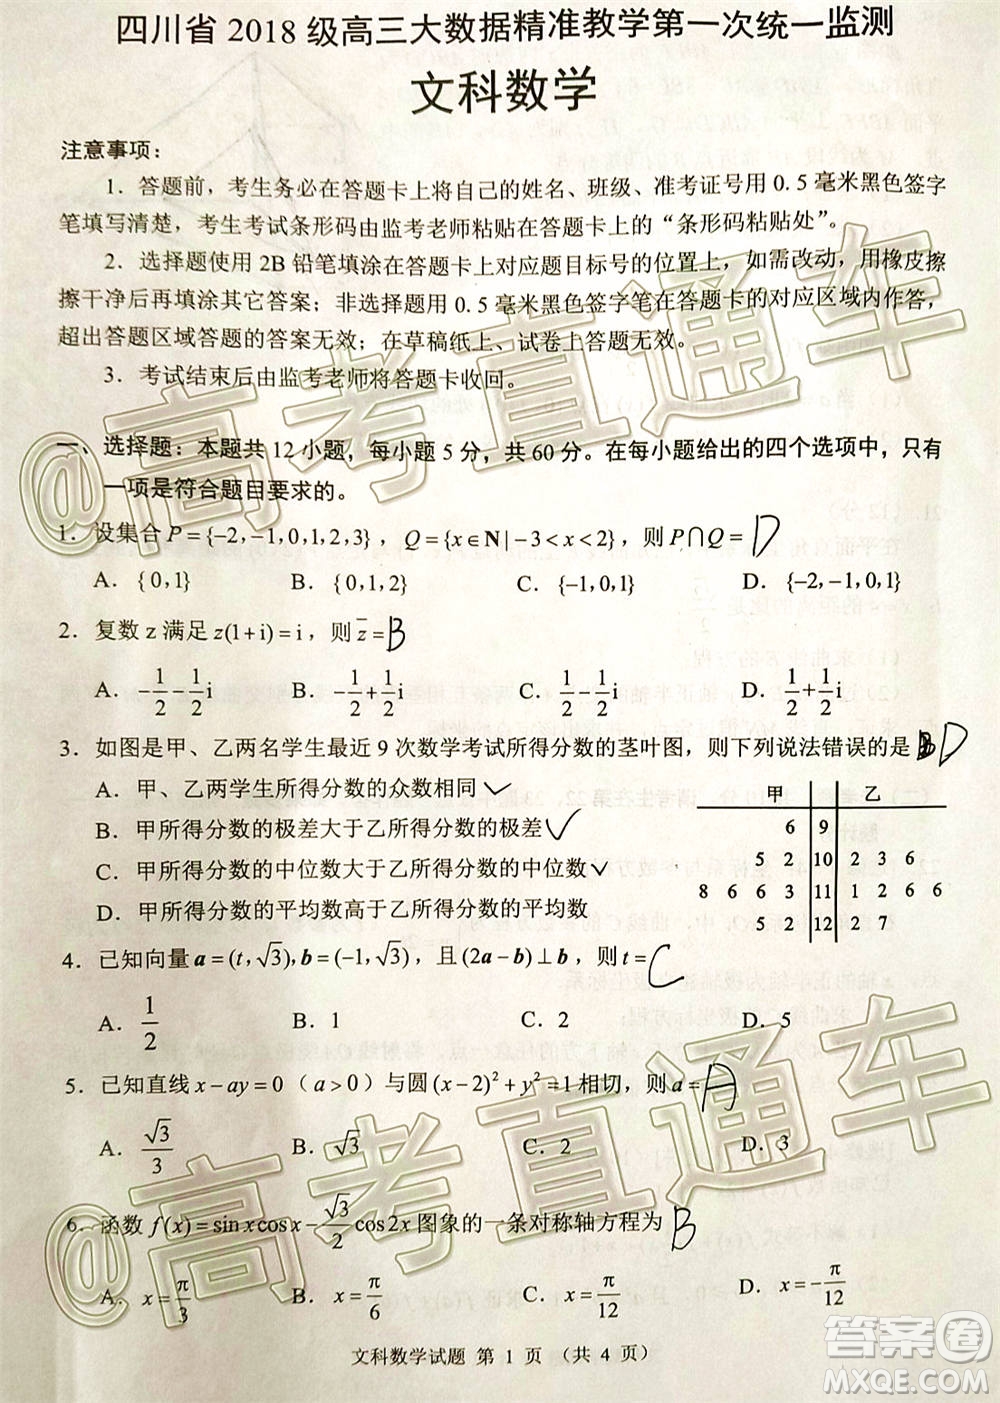 四川省 2018 级高三大数据精准教学第一次统一监测
文科数学
注意事项：
1．答题前，考生务必在答题卡上将自己的姓名、班级、准考证号用 0.5 毫米黑色签字
笔填写清楚，考生考试条形码由监考老师粘贴在答题卡上的“条形码粘贴处”。
2．选择题使用 2B 铅笔填涂在答题卡上对应题目标号的位置上，如需改动，用橡皮擦
擦干净后再填涂其它答案；非选择题用 0.5 毫米黑色签字笔在答题卡的对应区域内作答，
超出答题区域答题的答案无效；在草稿纸上、试卷上答题无效。
3．考试结束后由监考老师将答题卡收回。
一、选择题：本题共 12 小题，每小题 5 分，共 60 分。在每小题给出的四个选项中，只有
一项是符合题目要求的。
1．设集合 P={-2,-1,0,1,2,3}，Q={x∈N|-3<x<2}，则 P∩Q= D
A．{0,1} B．{0,1,2} C．{-1,0,1} D．{-2,-1,0,1}
2．复数 z 满足 z(1+i)=i，则 z̅= B
A．-1/2-1/2i B．1/2-1/2i C．-1/2+1/2i D．1/2+1/2i
3．如图是甲、乙两名学生最近 9 次数学考试所得分数的茎叶图，则下列说法错误的是 B D
A．甲、乙两学生所得分数的众数相同
B．甲所得分数的极差大于乙所得分数的极差
C．甲所得分数的中位数大于乙所得分数的中位数
D．甲所得分数的平均数高于乙所得分数的平均数
甲 乙
6 9
5 2 10 2 3 6
8 6 6 3 11 1 2 6 6
5 2 12 2 7
4．已知向量 a=(t,√3),b=(-1,√3)，且(2a-b)⊥b，则 t= C
A．1/2 B．1 C．2 D．5
5．已知直线 x-ay=0（a>0）与圆(x-2)²+y²=1 相切，则 a= A
A．√3/3 B．√3 C．2 D．3
6．函数 f(x)=sinxcosx-√3/2cos2x 图象的一条对称轴方程为 B
A．x=π/3 B．x=π/6 C．x=π/12 D．x=-π/12
文科数学试题 第 1 页 （共 4 页）
@高考直通车
@高考直通车
答案圈
MXQE.COM